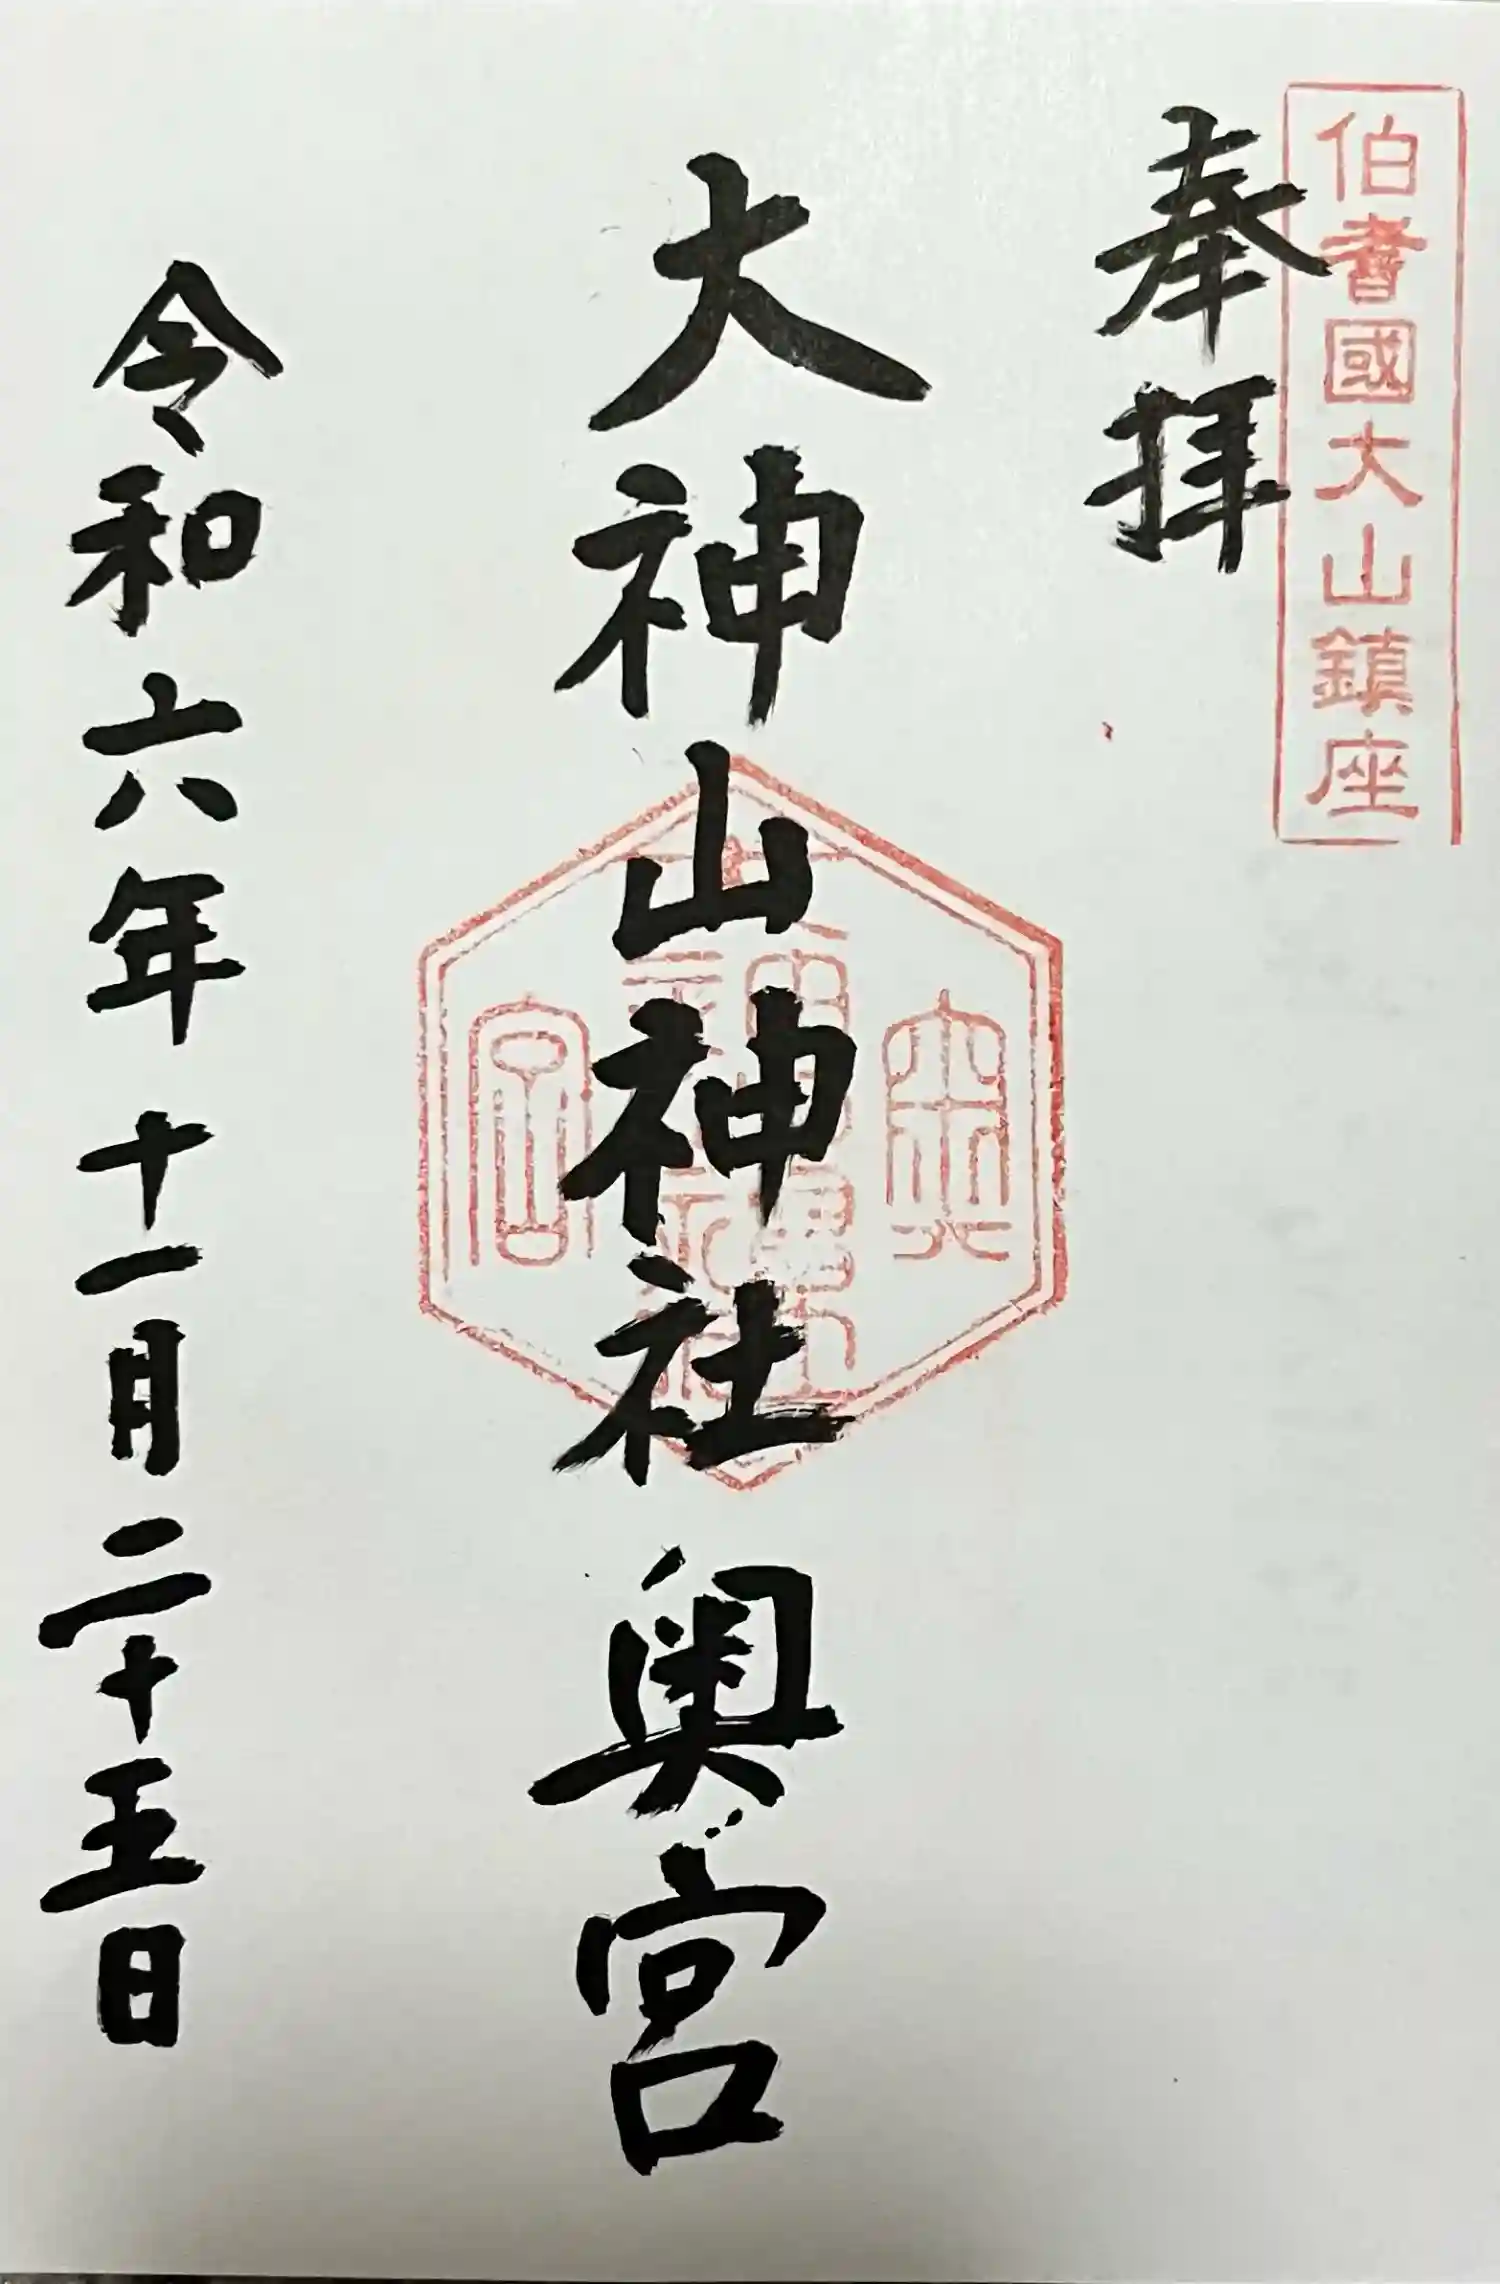 伯耆國大山鎮座
奉拝
大神山神社奥宮
令和六年十一月二十五日